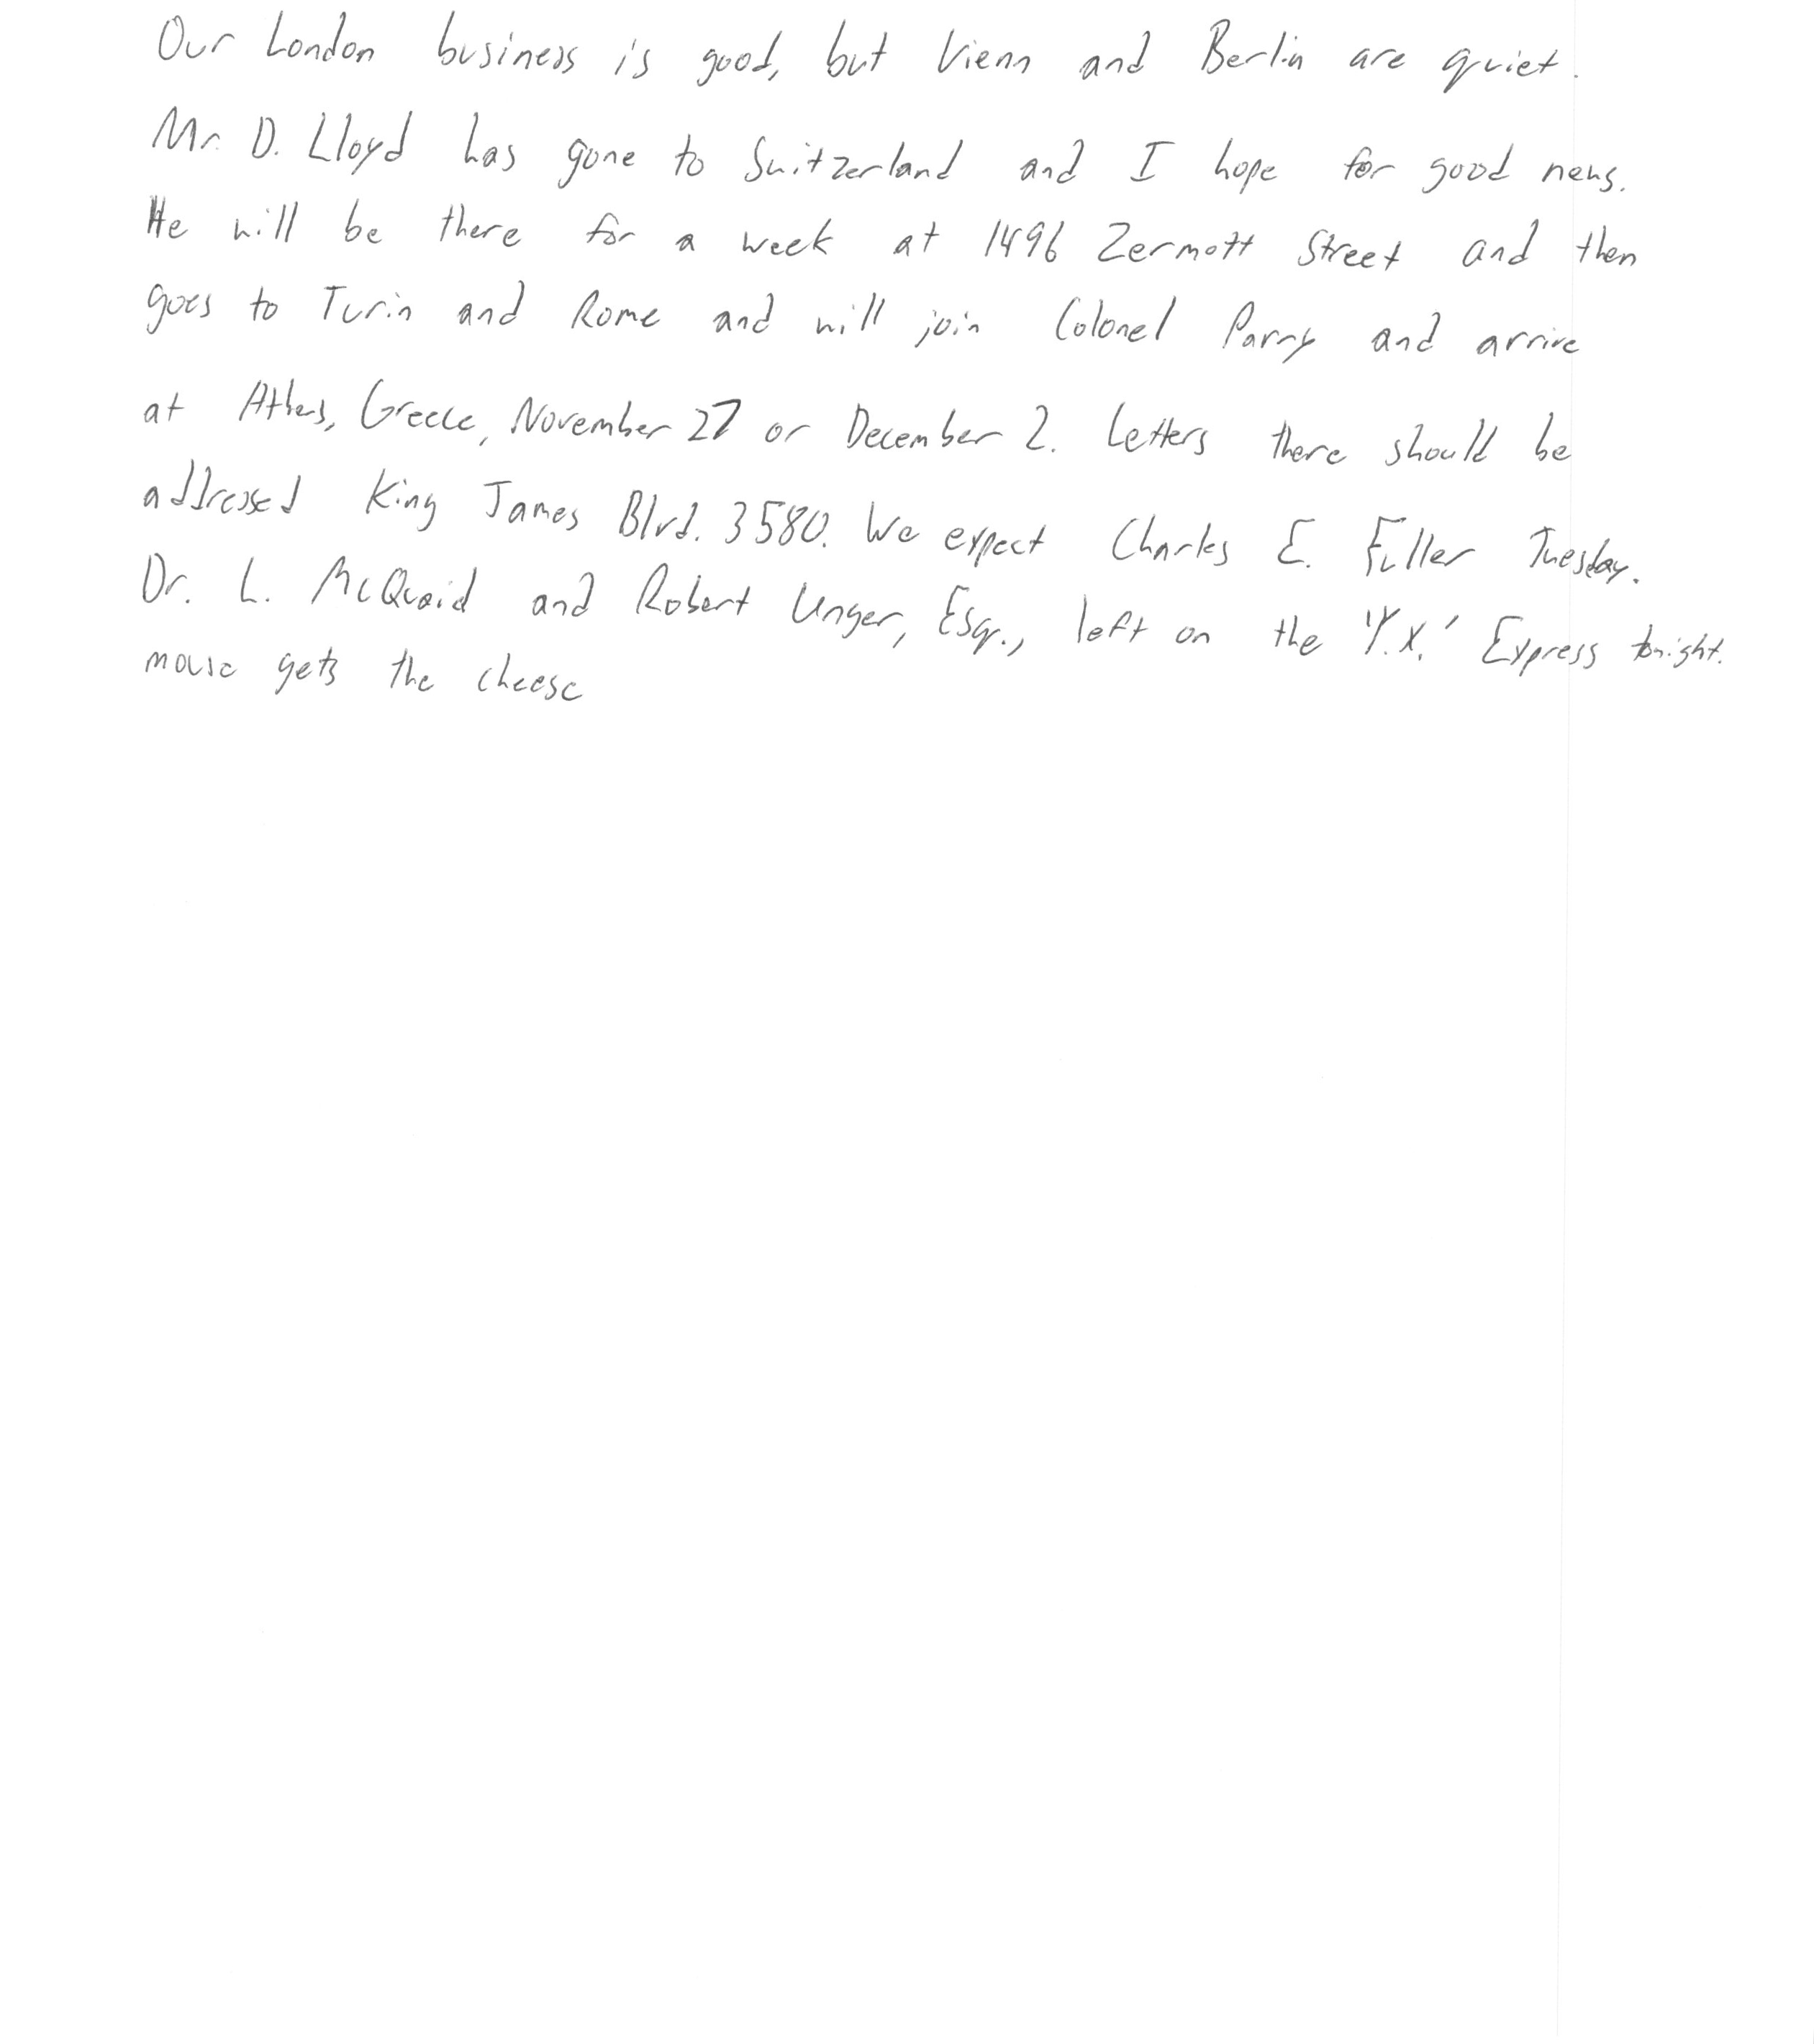 Our London business is good, but Vienn and Berlin are quiet.
Mr. D. Lloyd has gone to Switzerland and I hope for good news.
He will be there for a week at 1496 Zermott Street and then
goes to Turin and Rome and will join Colonel Parry and arrive
at Athens, Greece, November 27 or December 2. Letters there should be
addressed King James Blvd. 3580. We expect Charles E. Fuller Tuesday.
Dr. L. McQuaid and Robert Unger, Esqr., left on the 'Y.X.' Express tonight.
mouse gets the cheese